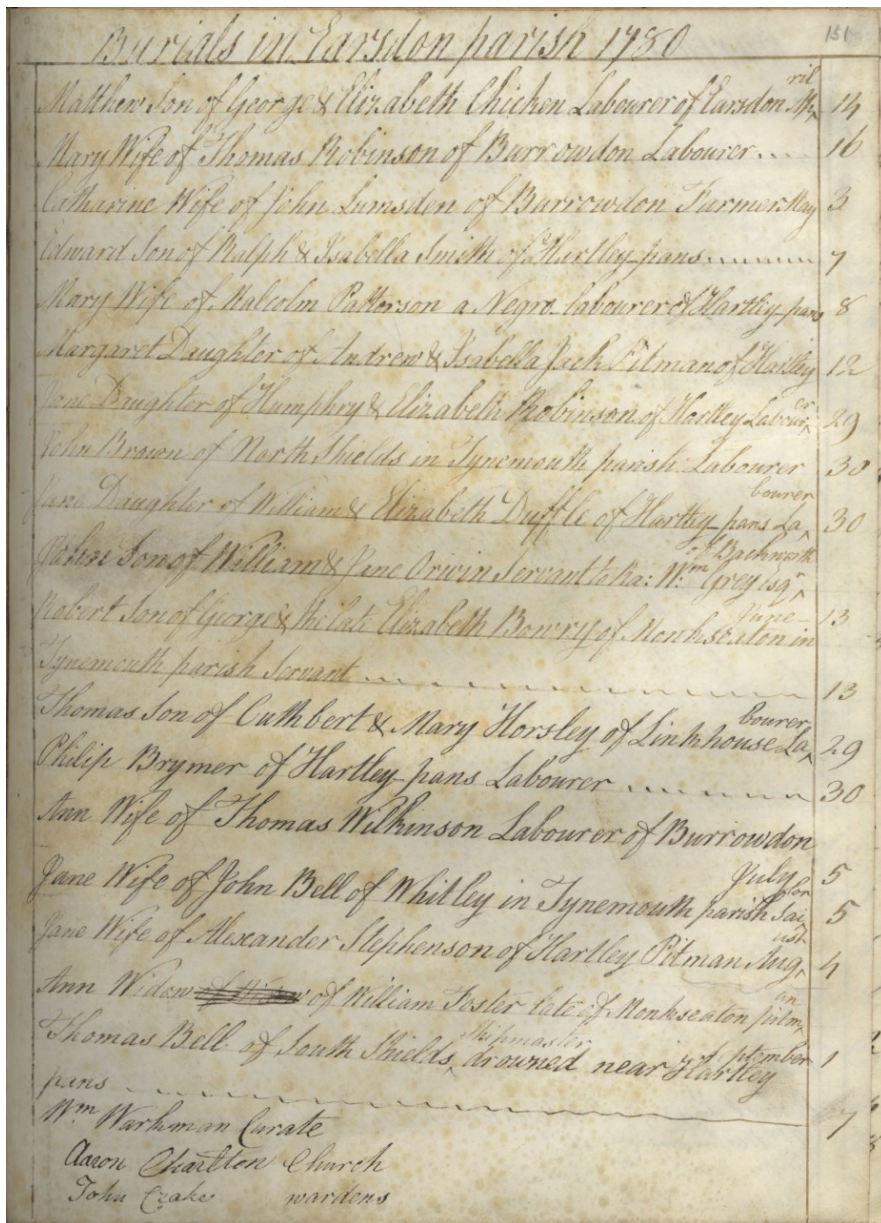 151
Burials in Earsdon parish 1780
Matthew Son of George & Elizabeth Chicken Labourer of Earsdon April 14
Mary Wife of Thomas Robinson of Burrowdon Labourer.... 16
Catharine Wife of John Lumsden of Burrowdon Farmer May 3
Edward Son of Ralph & Isabella Smith of Hartley-pans........ 7
Mary Wife of Malcolm Patterson a Negro labourer of Hartley-pans 8
Margaret Daughter of Andrew & Isabella Jack Pitman of Hartley 12
Jane Daughter of Humphry & Elizabeth Robinson of Hartley Labourer 29
John Brown of North Shields in Tynemouth parish Labourer 30
Jane Daughter of William & Elizabeth Duffle of Hartley-pans Labourer 30
Son of William & Jane Orwin Servant to Ra: Wm Grey Esqr of Backworth
June 13
Robert Son of George & the late Elizabeth Bowry of Monkseaton in
Tynemouth parish Servant 13
Thomas Son of Cuthbert & Mary Horsley of Linkhouse Labourer 29
Philip Brymer of Hartley-pans Labourer 30
Ann Wife of Thomas Wilkinson Labourer of Burrowdon
July 5
Jane Wife of John Bell of Whitley in Tynemouth parish Sailor 5
Jane Wife of Alexander Stephenson of Hartley Pitman August 4
Ann Widow of William Foster late of Monkseaton pitman
September 1
Thomas Bell of South Shields Shipmaster, drowned near Hartley
pans 7
Wm Warkman Curate
Aaron Charlton Church
John Crake wardens